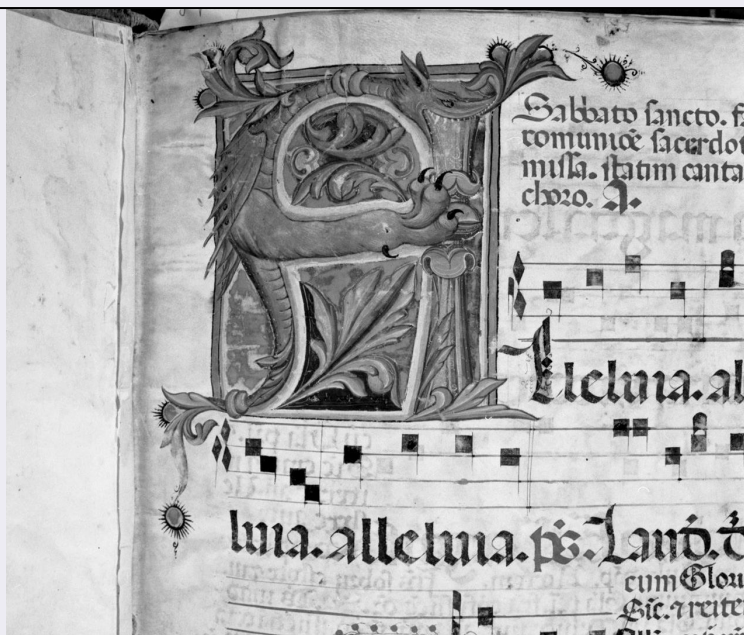 Sabbato sancto. f
comunicē sacerdot
missa. statim canta
choro. A.
Alleluia. al
luia. alleluia. ps. Laud. d
cum Glori
Sic. ⁊ reite